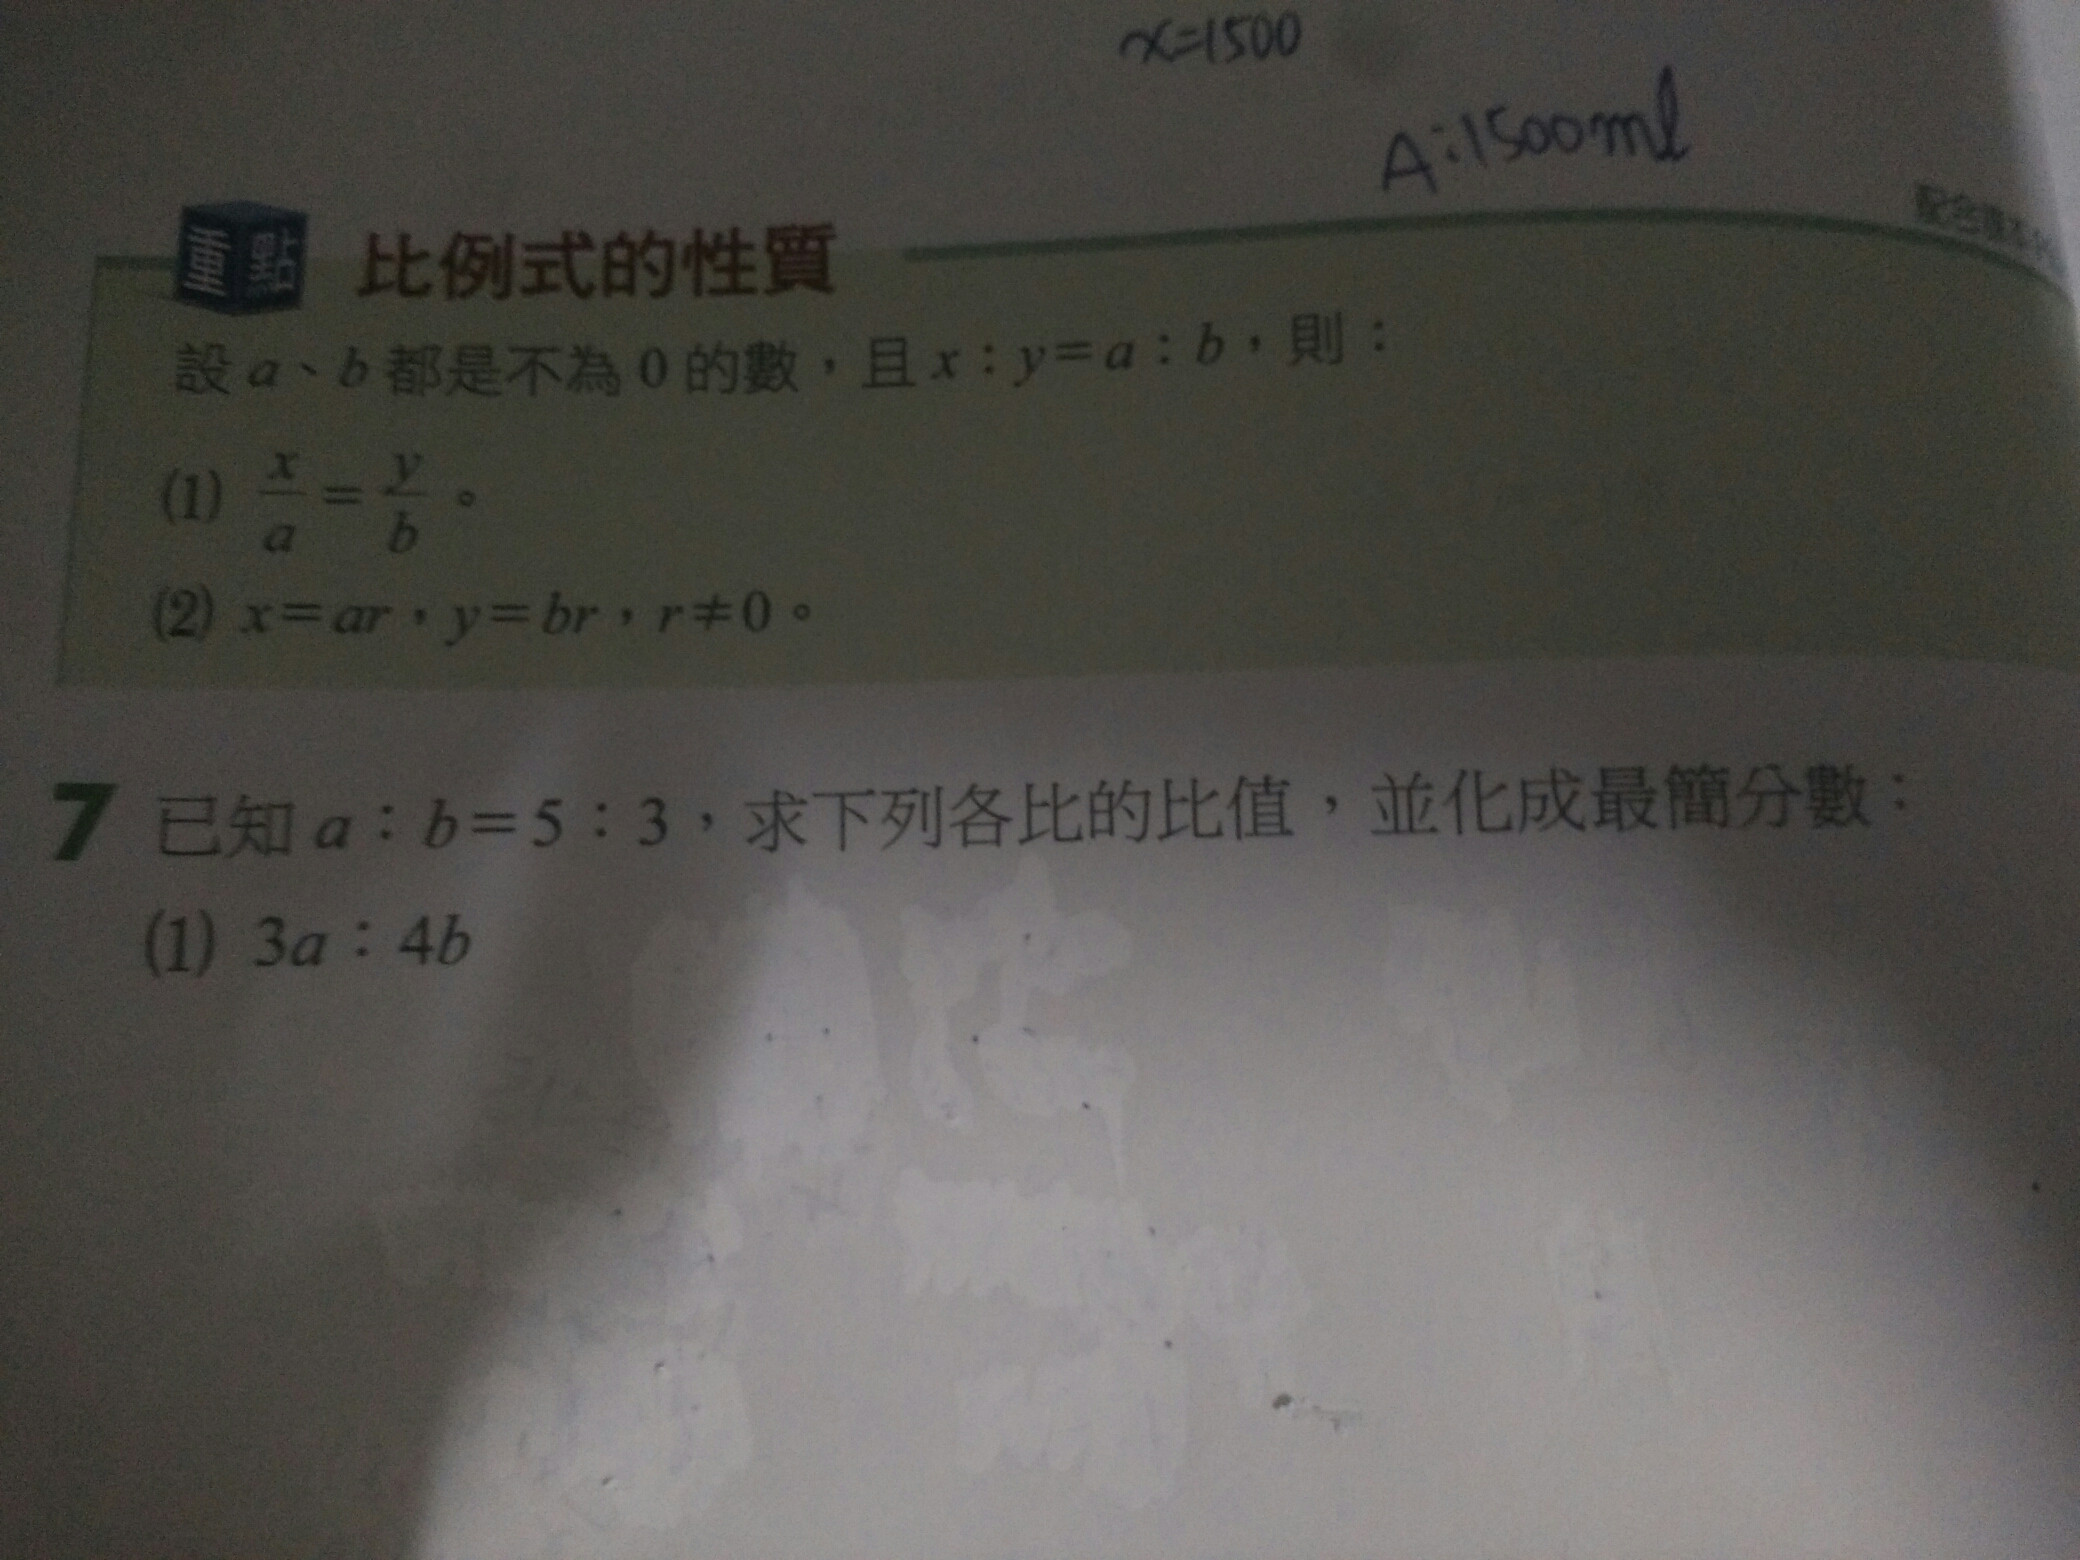 x=1500
A:1500ml
重點 比例式的性質
設 a、b 都是不為 0 的數，且 x：y=a：b，則：
(1) x/a = y/b。
(2) x=ar，y=br，r≠0。
7 已知 a：b=5：3，求下列各比的比值，並化成最簡分數：
(1) 3a：4b